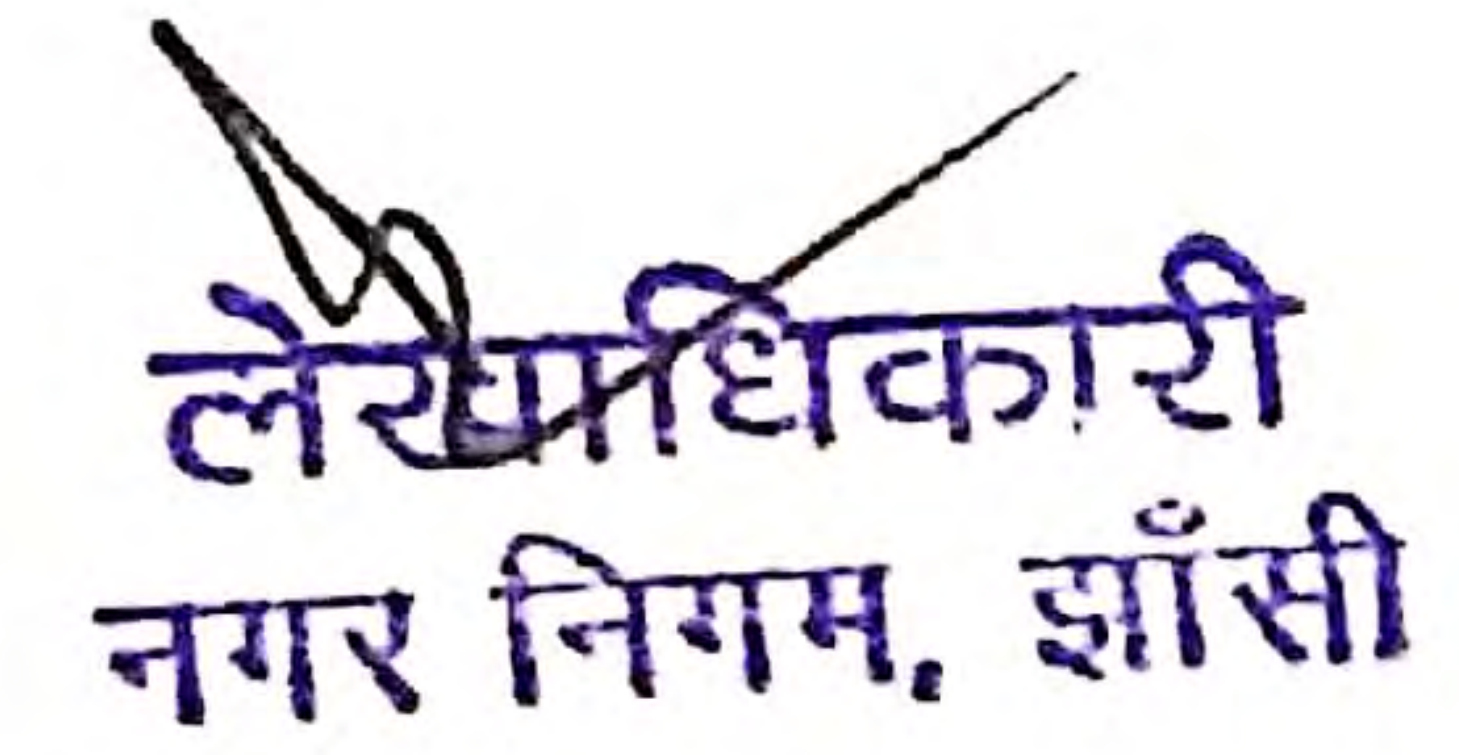 लेखाधिकारी
नगर निगम. झाँसी